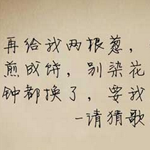 再给我两根葱，
煎成饼，别染花
钟都换了，要我
-请猜歌